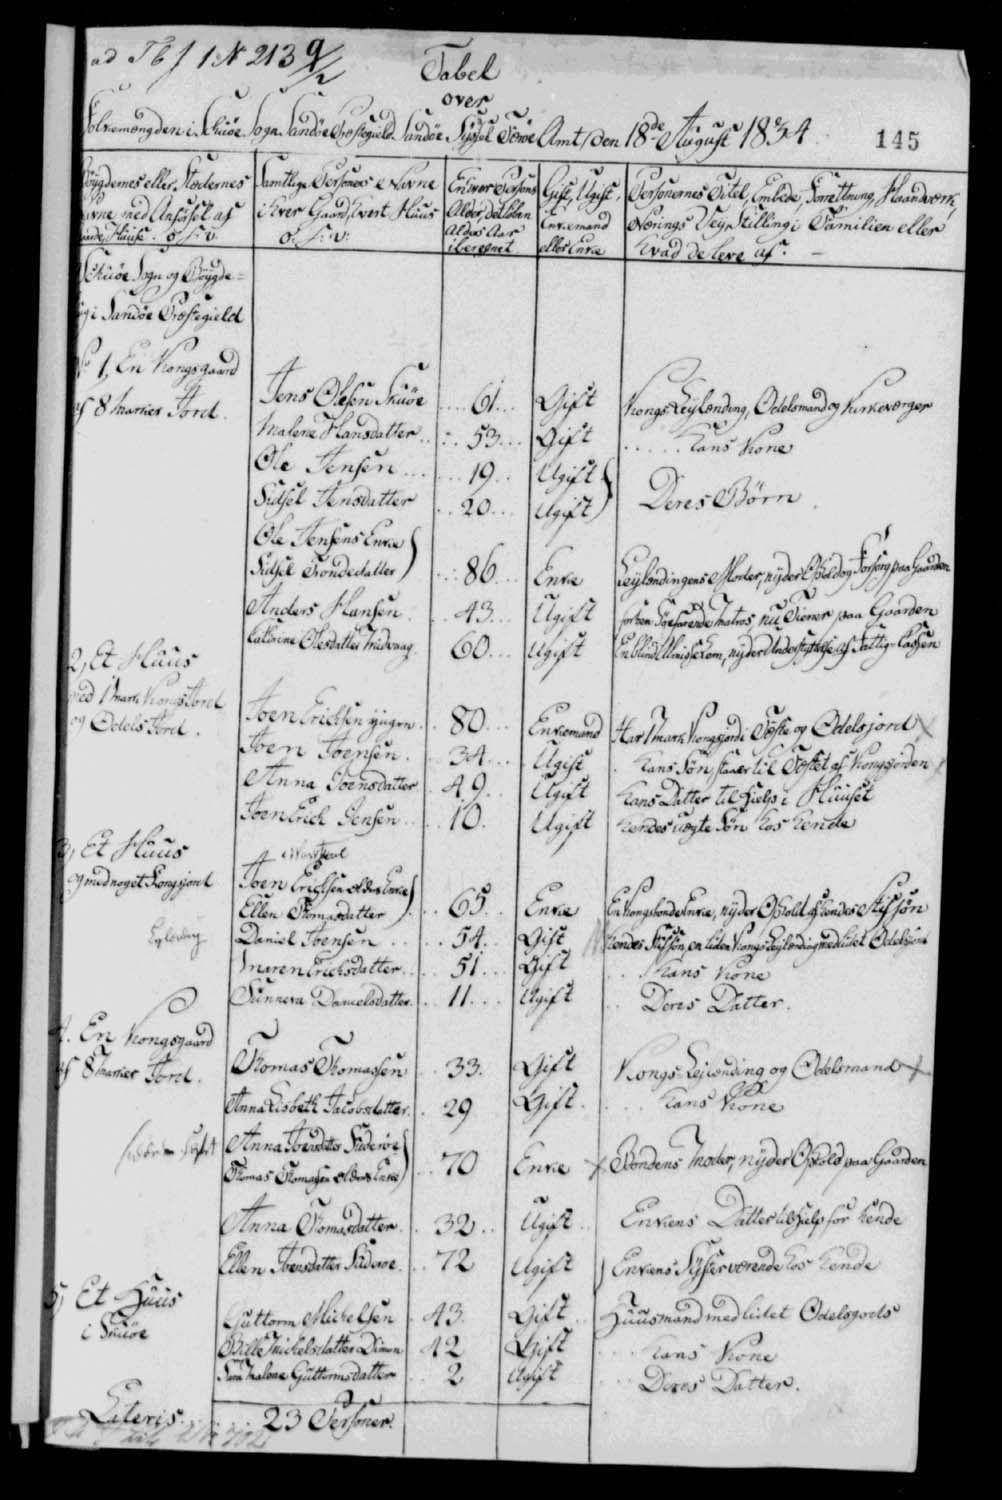 ad T b J 1 № 213 9/2
Tabel
over
Folkemængden i Skuöe Sogn Sandöe Præstegield Sandöe Syssel Færöe Amt, den 18de August 1834
145
Böygdernes eller Stædernes
Navne med Anförsel af
Gaarde, Huuse o: s: v:
Samtlige Personers Navne
i hver Gaard, hvert Huus
o: s: v:
Enhver Persons
Alder, det löbende
Alders Aar
iberegnet
Gift, Ugift,
Enkemand
eller Enke
Personernes Titel, Embede, Forretning, Haandværk,
Nærings Vey, Stilling i Familien eller
hvad de leve af.
Skuöe Sogn og Böygde-
lag i Sandöe Præstegield
No 1, En Kongsgaard
af 8 Marker Jord.
Jens Olesen Skuöe 61 Gift Kongs Leylænding, Odelsmand og Kirkeværger
Malene Hansdatter 53 Gift hans Kone
Ole Jensen 19 Ugift
Sidsel Jensdatter 20 Ugift Deres Börn
Ole Jensens Enke
Sidsel Trondedatter 86 Enke Leylændingens Moder, nyder Ophold og Forsörg paa Gaarden
Anders Hansen 43 Ugift forhen Söefarende Matros, nu Tiener paa Gaarden
Cathrine Olesdatter 60 Ugift En blind Almisselem, nyder Understyttelse af Fattig-Cassen
2, Et Huus
med 1 mark Kongs Jord
og Odels Jord.
Joen Erichsen yngre 80 Enkemand Har 1 mark Kongsjord i Fæste og Odelsjord
Joen Joensen 34 Ugift hans Sön, staaer til Fæstet af Kongsjorden
Anna Joensdatter 49 Ugift hans Datter til Hielp i Huuset
Joen Erich Jensen 10 Ugift hendes uægte Sön hos hende
3, Et Huus
og med noget Kongsjord
Joen Erichsen ældres Enke
Ellen Thomasdatter 65 Enke En Kongsbonde Enke, nyder Ophold af hendes Stifsön
Daniel Joensen 54 Gift hendes Stifsön, en liden Kongs Leylænding med lidet Odelsjord
Maren Erichsdatter 51 Gift hans Kone
Sunneva Danielsdatter 11 Ugift Deres Datter.
4. En Kongsgaard
af 8 Marker Jord.
Thomas Thomassen 33. Gift Kongs Leylænding og Odelsmand
Anna Lisbeth Jacobsdatter 29 Gift hans Kone
Anna Joensdatter Suderöe
Thomas Thomassen ældres Enke 70 Enke Bondens Moder, nyder Ophold paa Gaarden
Anna Thomasdatter 32 Ugift Enkens Datter til Hielp for hende
Ellen Joensdatter Suderöe 72 Ugift Enkens Syster værende hos hende
5, Et Huus
i Skuöe
Guttorm Michelsen 43. Gift Huusmand med lidet Odelsgods
Bille Michelsdatter Dimon 42 Gift hans Kone
Sara Malene Guttormsdatter 2 Ugift Deres Datter.
Lateris. 23 Personer.